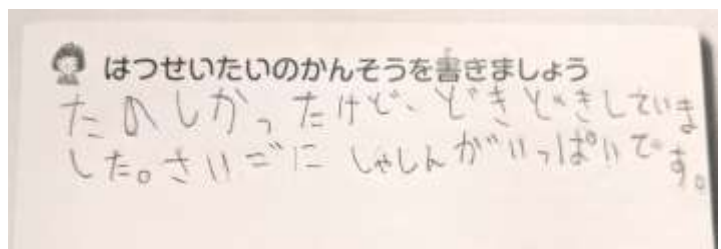 はつせいたいのかんそうを書きましょう
たのしかったけど、どきどきしていま
した。さいごにしゃしんがいっぱいです。